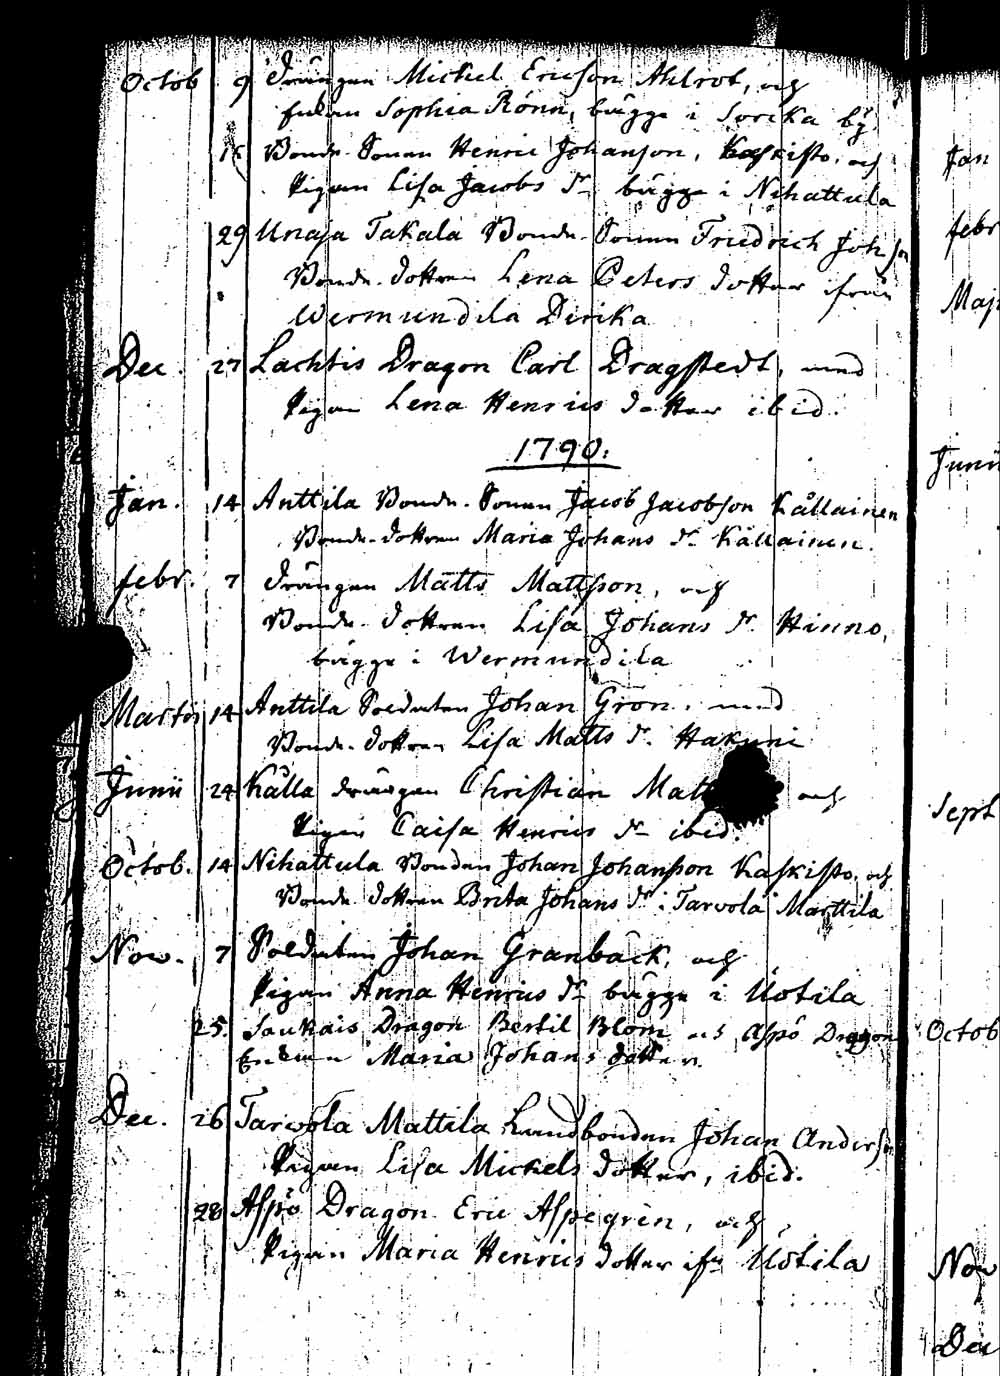 Octob 9 Drängen Michel Ericson Ahlrot, och
Enkan Sophia Rönn, bägge i Sorika by
16 Bonde-Sonen Henric Johanson, Kaskisto, och
Pigan Lisa Jacobs Dr bägge i Nihattula
29 Unaja Takala Bonde-Sonen Friedrich Joh son
Bonde-dottren Lena Peters dotter ifrån
Wermundila Dirika
Dec. 27 Lachtis Dragon Carl Dragstedt, med
Pigan Lena Henrics dotter ibid.
1790.
Jan. 14 Anttila Bonde-Sonen Jacob Jacobson Kållainen
Bonde-dottren Maria Johans Dr Källainen.
febr. 7 Drängen Matts Mattsson, och
Bonde-dottren Lisa Johans Dr Hinno,
bägge i Wermundila
Martii 14 Anttila Soldaten Johan Grön, med
Bonde-dottren Lisa Matts Dr. Hakuni
Junii 24 Källa drängen Christian Matt och
Pigan Caisa Henrics Dr ibid.
Octob. 14 Nihattula Bonden Johan Johansson Kaskisto, och
Bonde dottren Brita Johans Dr i Tarvola Marttila
Nov. 7 Soldaten Johan Granbäck, och
Pigan Anna Henrics Dr bägge i Uotila
25. Saukais Dragon Bertil Blom och Aspö Dragon
Enkan Maria Johans dotter.
Dec. 26 Tarvola Mattila Landbonden Johan Anderson
Pigan Lisa Michels dotter, ibid.
28 Aspö Dragon Eric Aspegrén, och
Pigan Maria Henrics dotter ifn Uotila
Jan
febr
Maji
Junii
Sept
Octob
Nov
Dec